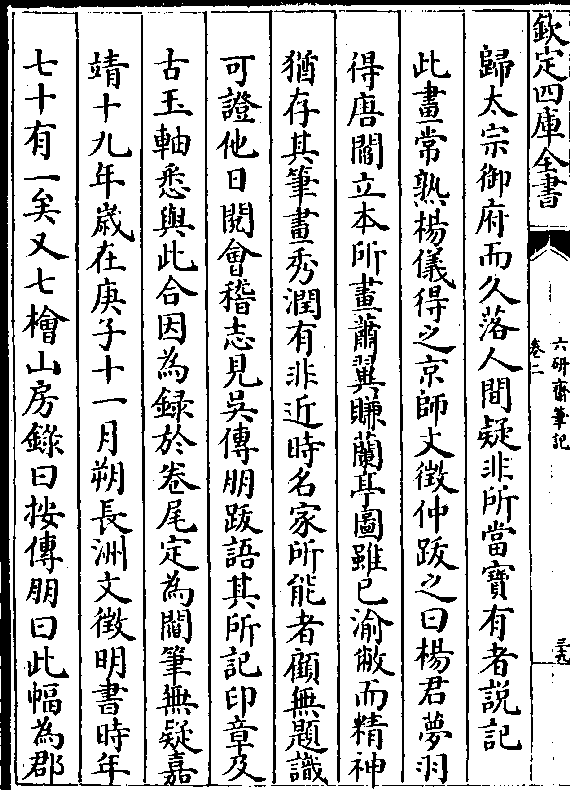 欽定四庫全書
六研齋筆記
卷二
三九
歸太宗御府而久落人間疑非所當寳有者説記
此畫常熟楊儀得之京師文徴仲跋之曰楊君夢羽
得唐閻立本所畫蕭翼賺蘭亭圖雖已渝敝而精神
猶存其筆畫秀潤有非近時名家所能者顧無題識
可證他日閲會稽志見吳傅朋跋語其所記印章及
古玉軸悉與此合因為録於卷尾定為閻筆無疑嘉
靖十九年歳在庚子十一月朔長洲文徴明書時年
七十有一矣又七檜山房錄曰按傅朋曰此幅為郡